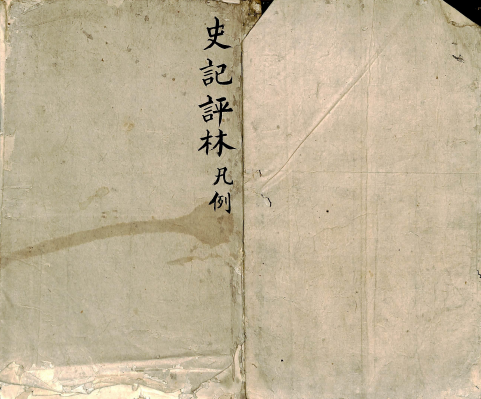 史記評林 凡例